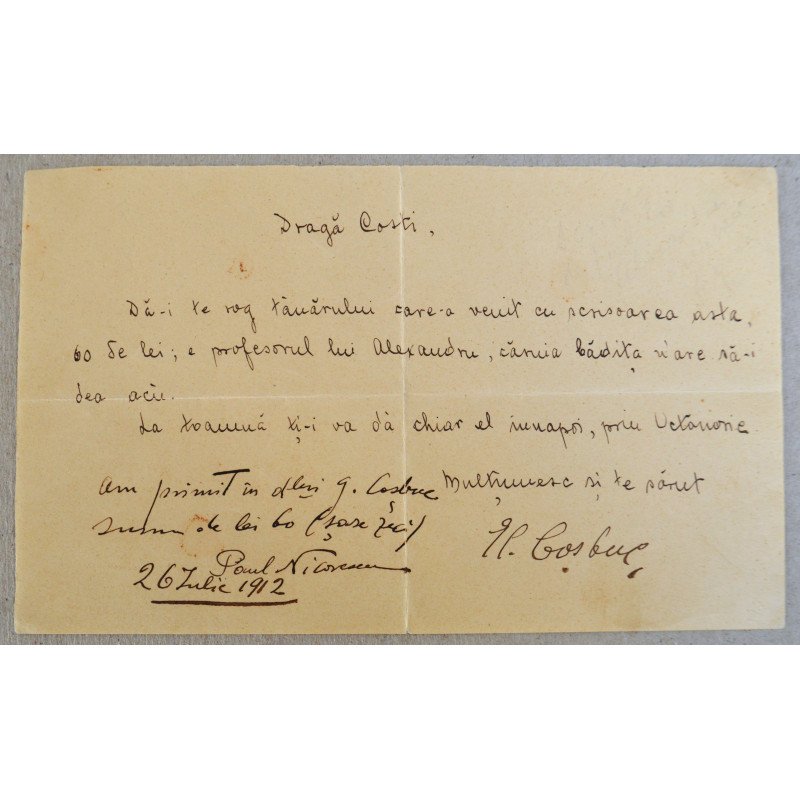 Dragă Costi,
Dă-i te rog tânărului care-a venit cu scrisoarea asta,
60 de lei; e profesorul lui Alexandru, căruia bădița n'are să-i
dea acu.
La toamnă ți-i va dà chiar el innapoi, prin Octavorie
Mulțumesc și te sărut
Coșbuc
Am primit în G. Cosbuc
suma de lei 60 (șase zeci)
Paul Nicorescu
26 Iulie 1912